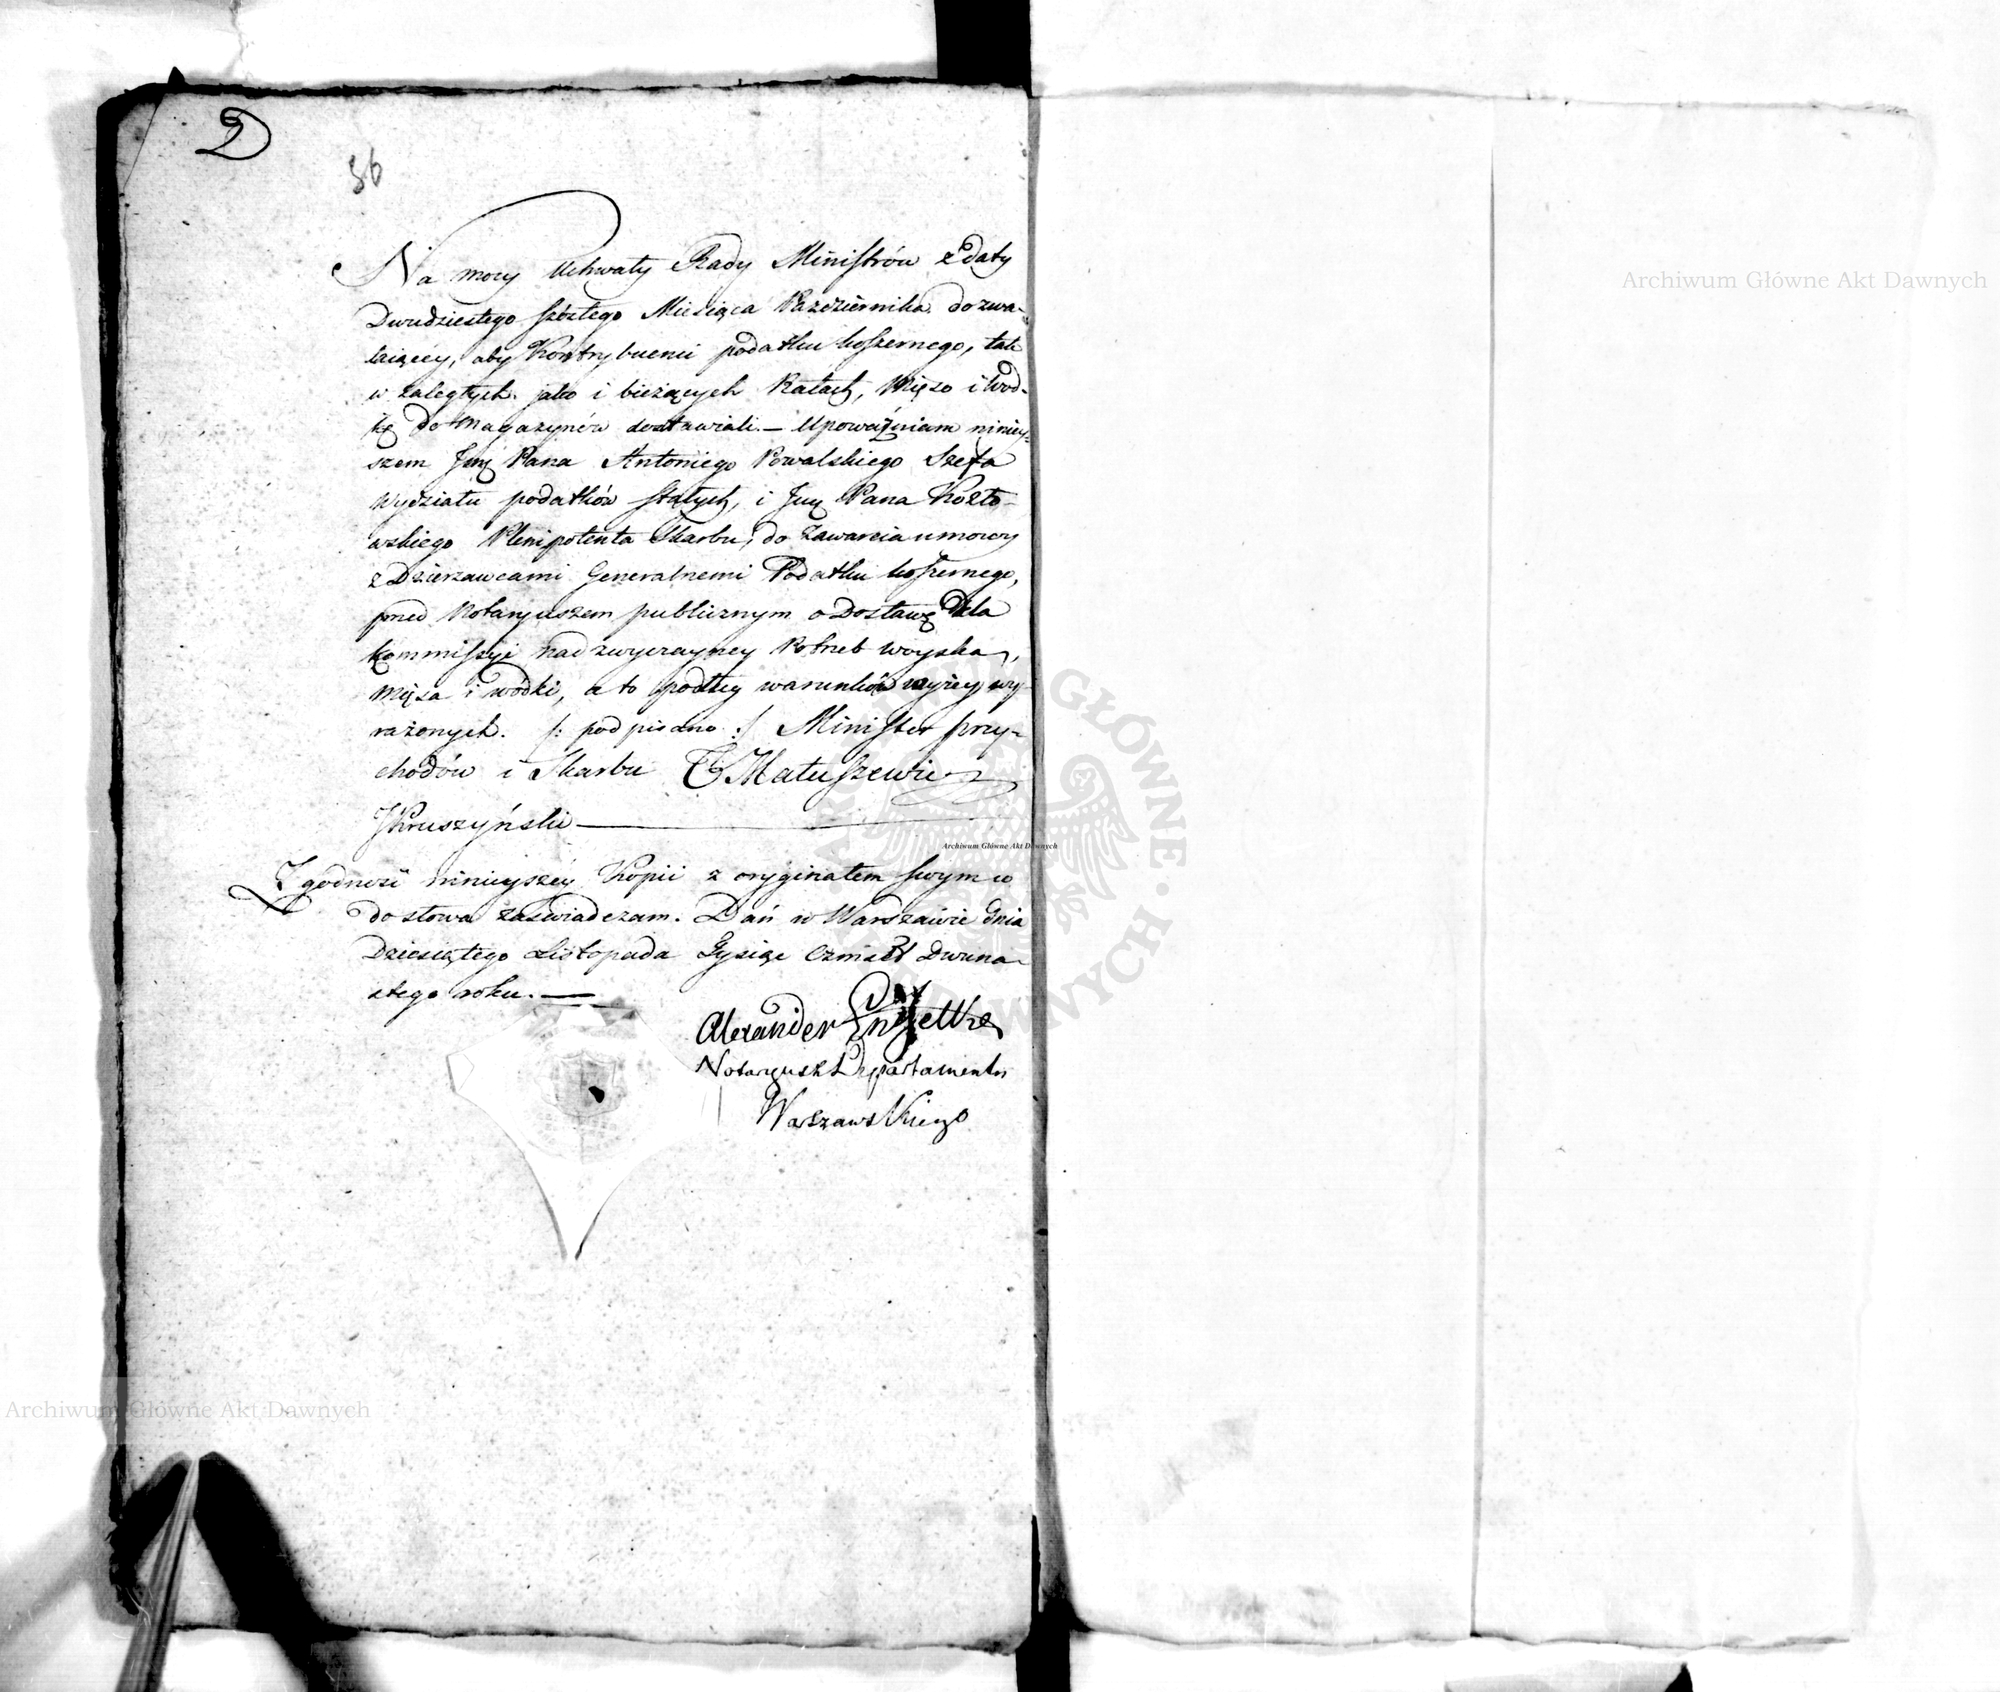 D
36
Na mocy Uchwały Rady Ministrów z daty
Dwudziestego szóstego Miesiąca Pazdziernika dozwa-
laiącéy, aby Kontrybuenci podatku koszernego, tak
w zaległych jako i bieżących Ratach, Mięso i wod-
kę do Magazynów dostawiali. — Upoważniam niniey-
szem Pana Antoniego Kowalskiego Szefa
Wydziału podatków stałych, i Pana Kozło-
wskiego Plenipotenta Skarbu, do zawarcia umowy
z Dzierzawcami Generalnemi Podatku koszernego,
przed Notaryuszem publicznym o Dostawę Dla
Kommissyi nadzwyczayney Potrzeb woyska,
Mięsa i wodki, a to podług warunków wyżey wy-
rażonych. /: podpisano :/ Minister przy-
chodów i Skarbu Matuszewic
Kruszyński
Zgodność ninieyszéy Kopii z oryginałem swym co
do słowa zaświadczam. Dań w Warszawie dnia
Dziesiątego Listopada Tysiąc Ośmset Dwuna-
stego roku. —
Alexander Engelke
Notaryusz Departamentu
Warszawskiego
Archiwum Główne Akt Dawnych
Archiwum Główne Akt Dawnych
Archiwum Główne Akt Dawnych